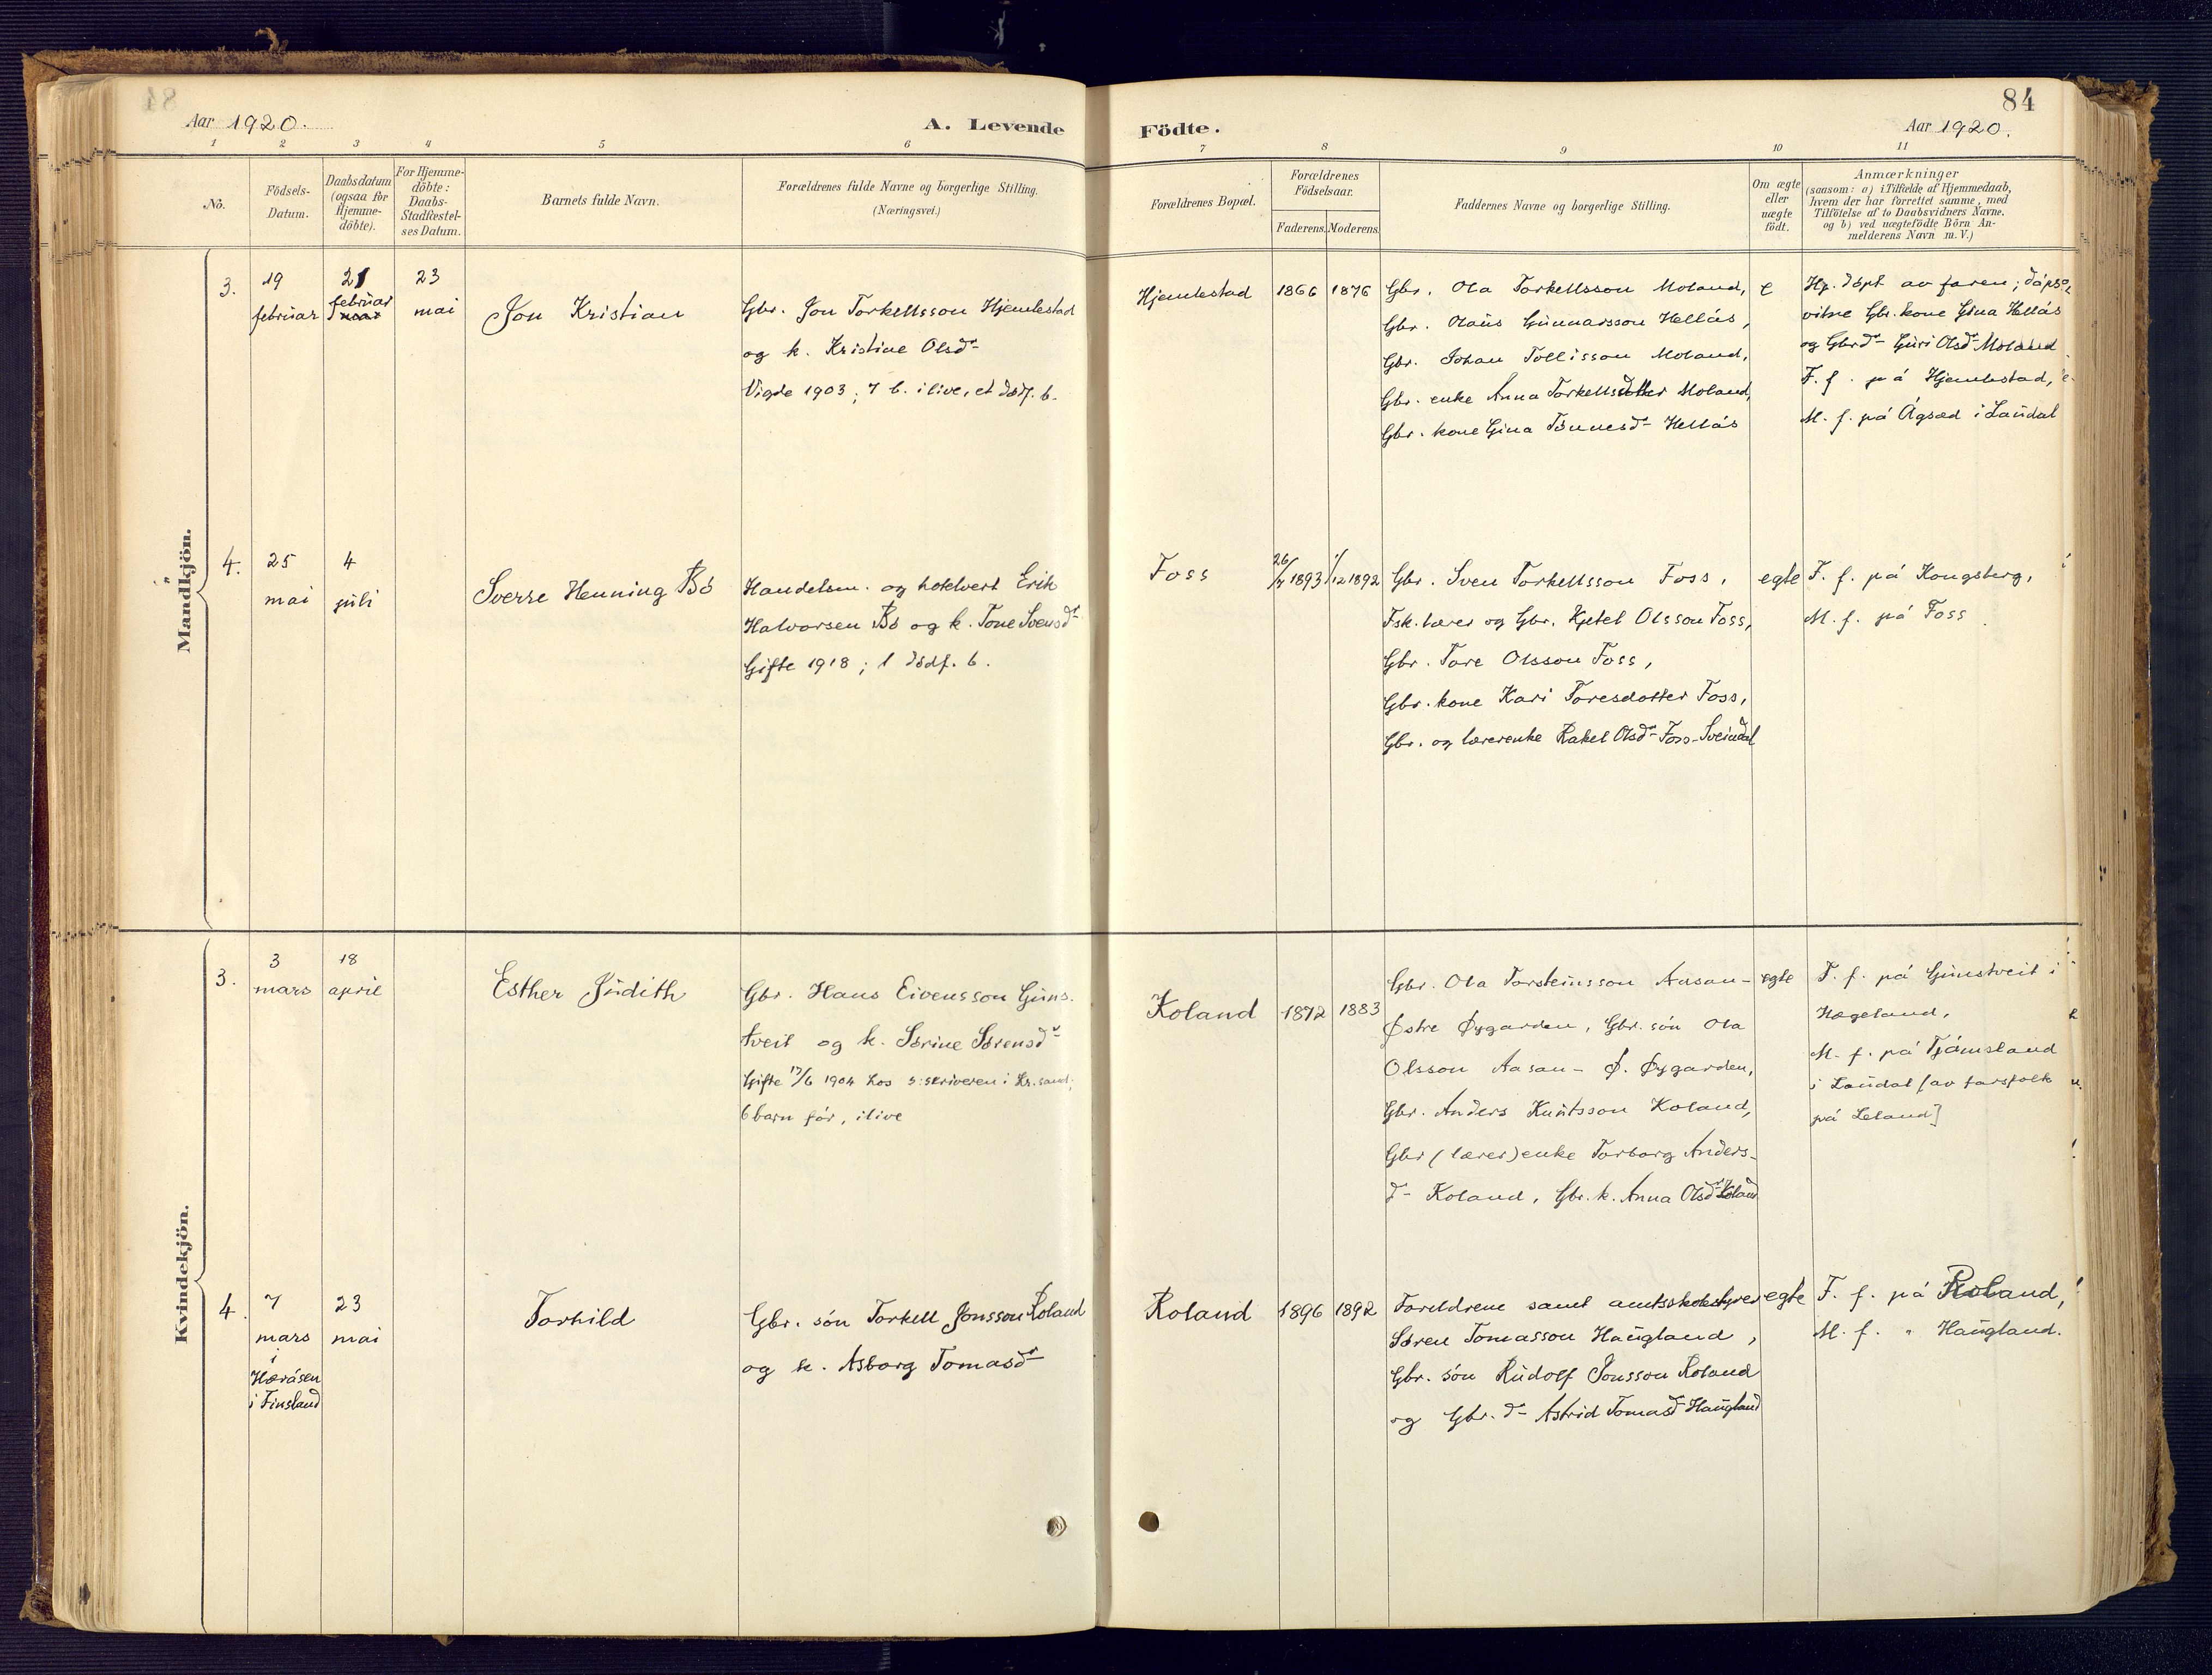 84
Aar 1920.
A. Levende
Födte.
Aar 1920.
1 2 3 4 5 6 7 8 9 10 11
No.
Födsels-
Datum.
Daabsdatum
(ogsaa for
Hjemme-
döbte).
For Hjemme-
döbte:
Daabs-
Stadfæstel-
ses Datum.
Barnets fulde Navn.
Forældrenes fulde Navne og borgerlige Stilling.
(Næringsvei.)
Forældrenes Bopæl.
Forældrenes
Födselsaar.
Faderens.
Moderens.
Faddernes Navne og borgerlige Stilling.
Om ægte
eller
uægte
födt.
Anmærkninger
(saasom: a) i Tilfælde af Hjemmedaab,
hvem der har forrettet samme, med
Tilföielse af to Daabsvidners Navne.
og b) ved uægtefödte Börn An-
melderens Navn m. V.)
Mandkjön.
3.
19
februar
21
februar
23
mai
Jon Kristian
Gbr. Jon Torkellsson Hjemlestad
og k. Kristine Olsdr
Vigde 1903; 7 b. ilive, et dødf. b.
Hjemlestad
1866
1876
Gbr. Ola Torkellsson Moland,
Gbr. Olaus Gunnarsson Hellås,
Gbr. Johan Tollisson Moland,
Gbr. enke Anna Torkellsdotter Moland,
Gbr. kone Gina Tønnesd- Hellås
e
Hj. døpt av faren; dåps-
vitne Gbr. kone Gina Hellås
og Gbrd- Guri Olsd- Moland
F. f. på Hjemlestad,
M. f. på Ågsæd i Laudal
4.
25
mai
4
juli
Sverre Henning Bö
Handelsm. og hotelvert Erik
Halvorsen Bö og k. Tone Svensdr
Gifte 1918; 1 dødf. b.
Foss
26/4 1893
1/12 1892
Gbr. Sven Torkellsson Foss,
Fsk. lærer og Gbr. Kjetel Olsson Foss,
Gbr. Tore Olsson Foss,
Gbr. kone Kari Toresdotter Foss,
Gbr. og lærerenke Rakel Olsdr Foss-Sveindal
egte
F. f. på Kongsberg,
M. f. på Foss
Kvindekjön.
3.
3
mars
18
april
Esther Judith
Gbr. Hans Eivensson Guns-
tveit og k. Sørine Sørensdr
Gifte 17/6 1904 hos s:skriveren i Kr.sand;
6 barn før, ilive
Koland
1872
1883
Gbr. Ola Torsteinsson Aasan-
Østre Øygarden, Gbr. són Ola
Olsson Aasan- Ø. Øygarden,
Gbr. Anders Knutsson Koland,
Gbr (lærer)enke Torborg Anders-
d- Koland, Gbr. k. Anna Olsdr Koland
egte
F. f. på Gunstveit i
Hægeland,
M. f. på Tjåmsland
i Laudal [av farsfolk
på Leland]
4.
7
mars
i
Heråsen
i Finsland
23
mai
Torhild
Gbr. són Torkell Jonsson Roland
og k. Asborg Tomasdr
Roland
1896
1892
Foreldrene samt amtsskolestyrer
Søren Tomasson Haugland,
Gbr. són Rudolf Jonsson Roland
og Gbr. d- Astrid Tomasd Haugland
egte
F. f. på Roland,
M. f. " Haugland.